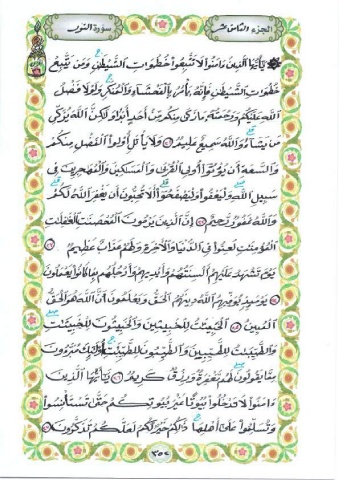 الجزء الثامن عشر
سورة النور
يَٰٓأَيُّهَا ٱلَّذِينَ ءَامَنُوا۟ لَا تَتَّبِعُوا۟ خُطُوَٰتِ ٱلشَّيْطَٰنِ وَمَن يَتَّبِعْ
خُطُوَٰتِ ٱلشَّيْطَٰنِ فَإِنَّهُۥ يَأْمُرُ بِٱلْفَحْشَآءِ وَٱلْمُنكَرِ وَلَوْلَا فَضْلُ
ٱللَّهِ عَلَيْكُمْ وَرَحْمَتُهُۥ مَا زَكَىٰ مِنكُم مِّنْ أَحَدٍ أَبَدًا وَلَٰكِنَّ ٱللَّهَ يُزَكِّى
مَن يَشَآءُ وَٱللَّهُ سَمِيعٌ عَلِيمٌ ٢١ وَلَا يَأْتَلِ أُو۟لُوا۟ ٱلْفَضْلِ مِنكُمْ
وَٱلسَّعَةِ أَن يُؤْتُوٓا۟ أُو۟لِى ٱلْقُرْبَىٰ وَٱلْمَسَٰكِينَ وَٱلْمُهَٰجِرِينَ فِى
سَبِيلِ ٱللَّهِ وَلْيَعْفُوا۟ وَلْيَصْفَحُوٓا۟ أَلَا تُحِبُّونَ أَن يَغْفِرَ ٱللَّهُ لَكُمْ
وَٱللَّهُ غَفُورٌ رَّحِيمٌ ٢٢ إِنَّ ٱلَّذِينَ يَرْمُونَ ٱلْمُحْصَنَٰتِ ٱلْغَٰفِلَٰتِ
ٱلْمُؤْمِنَٰتِ لُعِنُوا۟ فِى ٱلدُّنْيَا وَٱلْءَاخِرَةِ وَلَهُمْ عَذَابٌ عَظِيمٌ ٢٣
يَوْمَ تَشْهَدُ عَلَيْهِمْ أَلْسِنَتُهُمْ وَأَيْدِيهِمْ وَأَرْجُلُهُم بِمَا كَانُوا۟ يَعْمَلُونَ
٢٤ يَوْمَئِذٍ يُوَفِّيهِمُ ٱللَّهُ دِينَهُمُ ٱلْحَقَّ وَيَعْلَمُونَ أَنَّ ٱللَّهَ هُوَ ٱلْحَقُّ
ٱلْمُبِينُ ٢٥ ٱلْخَبِيثَٰتُ لِلْخَبِيثِينَ وَٱلْخَبِيثُونَ لِلْخَبِيثَٰتِ
وَٱلطَّيِّبَٰتُ لِلطَّيِّبِينَ وَٱلطَّيِّبُونَ لِلطَّيِّبَٰتِ أُو۟لَٰٓئِكَ مُبَرَّءُونَ
مِمَّا يَقُولُونَ لَهُم مَّغْفِرَةٌ وَرِزْقٌ كَرِيمٌ ٢٦ يَٰٓأَيُّهَا ٱلَّذِينَ
ءَامَنُوا۟ لَا تَدْخُلُوا۟ بُيُوتًا غَيْرَ بُيُوتِكُمْ حَتَّىٰ تَسْتَأْنِسُوا۟
وَتُسَلِّمُوا۟ عَلَىٰٓ أَهْلِهَا ذَٰلِكُمْ خَيْرٌ لَّكُمْ لَعَلَّكُمْ تَذَكَّرُونَ ٢٧
٣٥٢